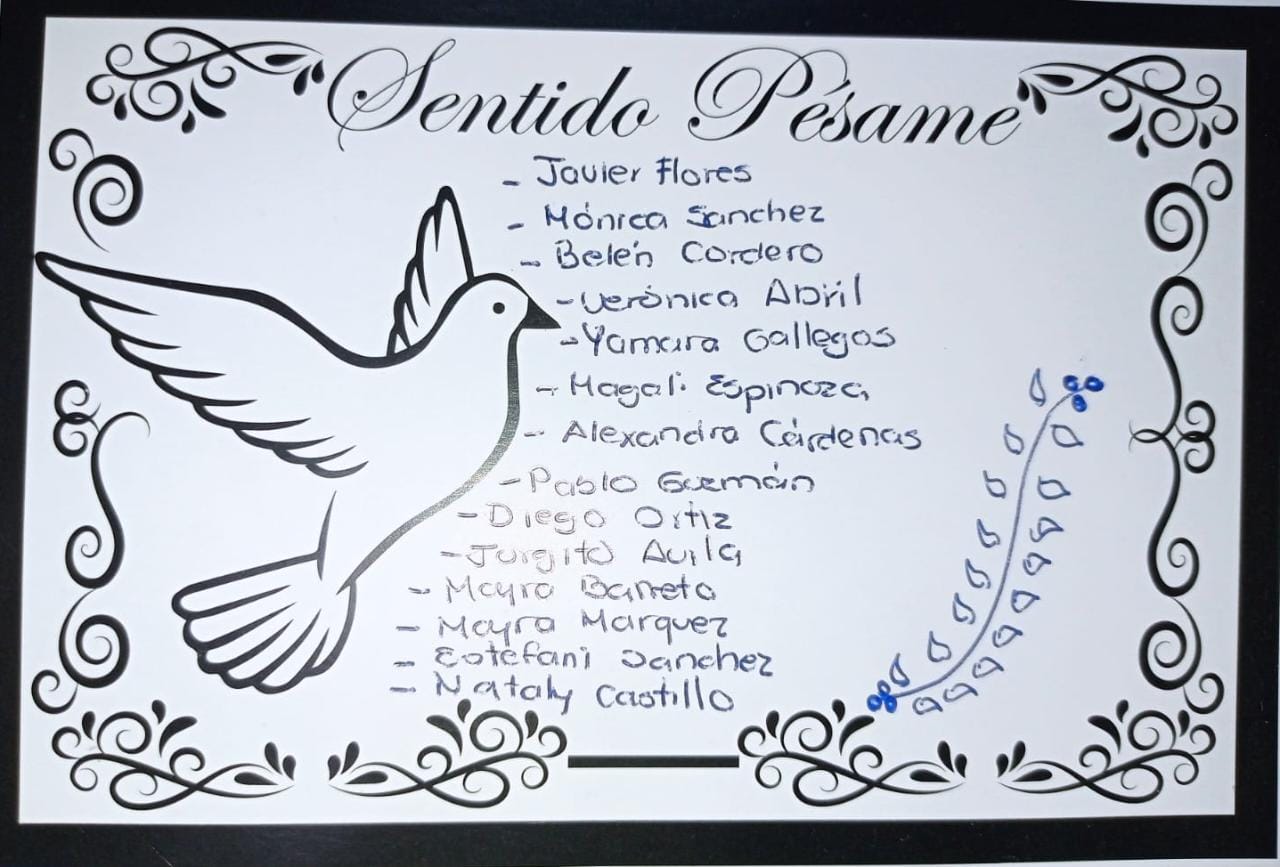 Sentido Pésame
- Javier Flores
- Mónica Sanchez
- Belén Cordero
- Verónica Abril
- Yamara Gallegos
- Magali Espinoza
- Alexandra Cárdenas
- Pablo Guzmán
- Diego Ortiz
- Jorgito Avila
- Mayra Barreto
- Mayra Marquez
- Estefani Sanchez
- Nataly Castillo